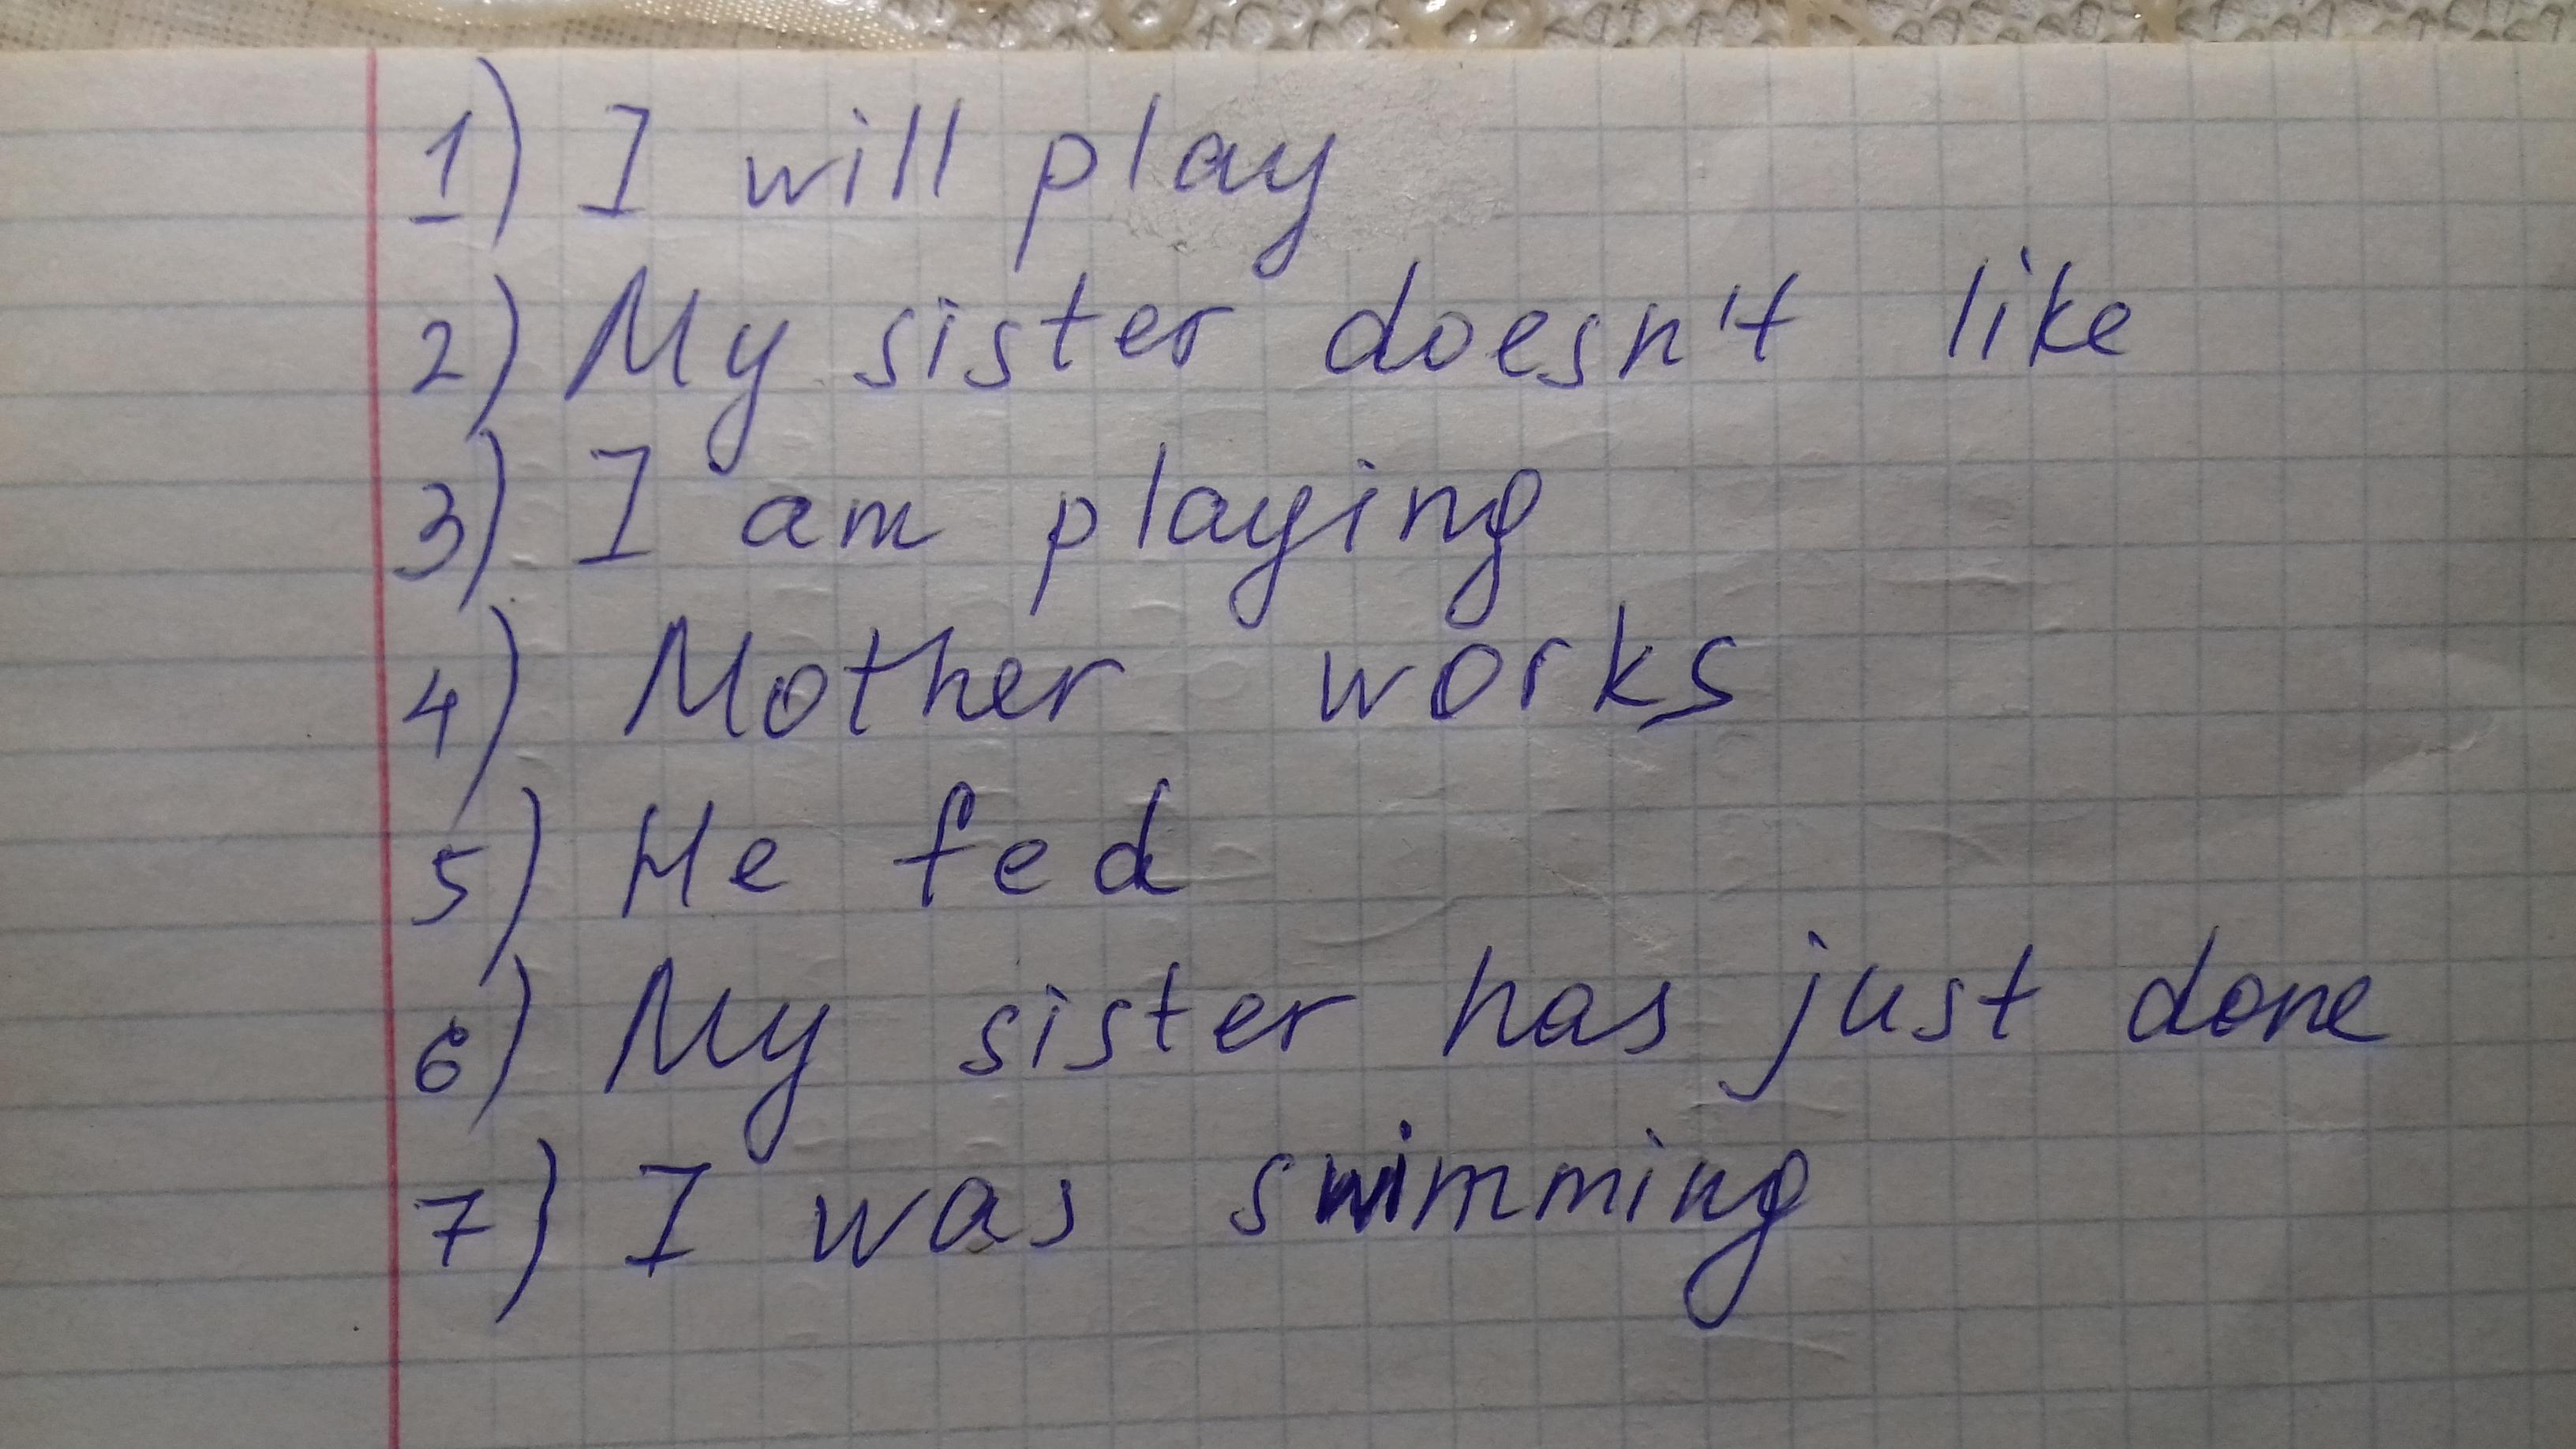 1) I will play
2) My sister doesn't like
3) I am playing
4) Mother works
5) He fed
6) My sister has just done
7) I was swimming